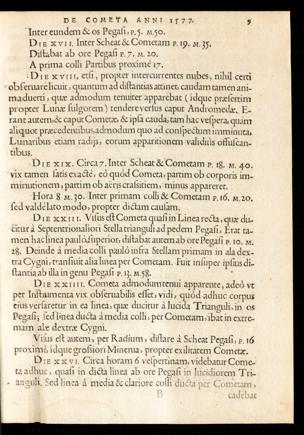 DE COMETA ANNI 1577. 9
Inter eundem & os Pegasi, P. 5. M. 50.
DIE XVII. Inter Scheat & Cometam P. 19. M. 35.
Distabat ab ore Pegasi P. 7. M. 20.
A prima colli Partibus proximè 17.
DIE XVIII, etsi, propter intercurrentes nubes, nihil certi
obseruare licuit, quantum ad distantias attinet, caudam tamen ani-
maduerti, quæ admodum tenuiter apparebat (idque præsertim
propter Lunæ fulgorem) tendere versus caput Andromedæ. E-
rant autem, & caput Cometæ, & ipsa cauda, tam hac vespera, quàm
aliquot præcedentibus, admodum quo ad conspectum imminuta,
Lunaribus etiam radijs, eorum apparitionem validiùs offuscan-
tibus.
DIE XIX. Circa 7. Inter Scheat & Cometam P. 18. M. 40.
vix tamen satis exactè, eò quòd Cometa, partim ob corporis im-
minutionem, partim ob aëris crassitiem, minus appareret.
Hora 8 M. 30. Inter primam colli & Cometam P. 16. M. 20,
sed valdè lato modo, propter dictam causam.
DIE XXIII. Visus est Cometa quasi in Linea recta, quæ du-
citur à Septentrionaliori Stella trianguli ad pedem Pegasi, Erat ta-
men hac linea pauló superior, distabat autem ab ore Pegasi P. 10. M.
28. Deinde à media colli paulò infra Stellam primam in ala dex-
tra Cygni, transiuit alia linea per Cometam. Fuit insuper ipsius di-
stantia ab illa in genu Pegasi P. 13. M. 58.
DIE XXIIII. Cometa admodum tenui apparente, adeò vt
per Instrumenta vix obseruabilis esset, vidi, quòd adhuc corpus
eius versaretur in ea linea, quæ ducitur à lucida Trianguli, in os
Pegasi; sed linea ducta à media colli, per Cometam, ibat in extre-
mam alæ dextræ Cygni.
Visus est autem, per Radium, distare à Scheat Pegasi, P. 16
proximè, idque grossiori Minerua, propter exilitatem Cometæ.
DIE XXVI. Circa horam 6 vespertinam, videbatur Come-
ta adhuc, quasi in dicta linea ab ore Pegasi in lucidiorem Tri-
anguli. Sed linea à media & clariore colli ducta per Cometam,
B cadebat